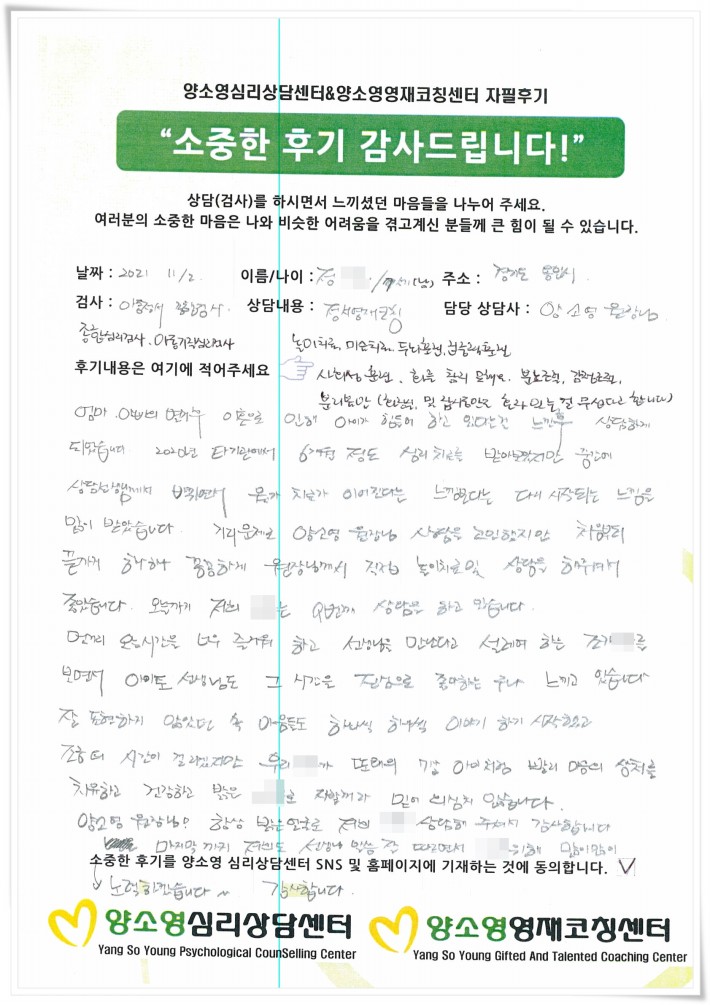 양소영심리상담센터&양소영영재코칭센터 자필후기
“소중한 후기 감사드립니다!”
상담(검사)를 하시면서 느끼셨던 마음들을 나누어 주세요.
여러분의 소중한 마음은 나와 비슷한 어려움을 겪고계신 분들께 큰 힘이 될 수 있습니다.
날짜 : 2021 11/2. 이름/나이 : 정 /7세(남) 주소 : 경기도 용인시.
검사 : 상담내용 : 담당 상담사 : 양소영 원장님
종합심리검사, 아동기질심리검사 놀이치료, 미술치료,
후기내용은 여기에 적어주세요 사회성 훈련, 분노조절, 감정조절,
엄마, 아빠의 이혼으로 인해 아이가 힘들어 하고 있다는걸 느낀후 상담하게
되었습니다. 2020년 타기관에서 6개월 정도 심리치료를 받아보았지만 중간에
상담선생님께서 바뀌면서 뭔가 치료가 이어진다는 느낌보다는 다시 시작되는 느낌을
많이 받았습니다. 거리문제로 양소영 원장님 상담을 고민했지만
끝까지 하나하나 꼼꼼하게 원장님께서 직접 놀이치료 및 상담을 해주셔서
좋았습니다. 오늘까지 저희 는 9번째 상담을 하고 있습니다.
너무 즐거워 하고 선생님을 만난다고 설레여 하는 를
보면서 아이도 선생님도 그 시간을 진심으로 좋아하는 구나 느끼고 있습니다
잘 표현하지 않았던 속 마음들도 하나씩 하나씩 이야기 하기 시작하였고
조금 더 시간이 걸리겠지만 우리 가 또래의 7살 아이처럼 빨리 마음의 상처를
치유하고 건강하고 밝은 로 자랄꺼라 믿어 의심치 않습니다.
양소영 원장님? 항상 밝은 얼굴로 저희 상담해 주셔서 감사합니다
마지막 까지 저희도 선생님 말씀 잘 따르면서 위해 많이많이
소중한 후기를 양소영 심리상담센터 SNS 및 홈페이지에 기재하는 것에 동의합니다. ✓
노력하겠습니다 ~ 감사합니다.
양소영심리상담센터
Yang So Young Psychological CounSelling Center
양소영영재코칭센터
Yang So Young Gifted And Talented Coaching Center